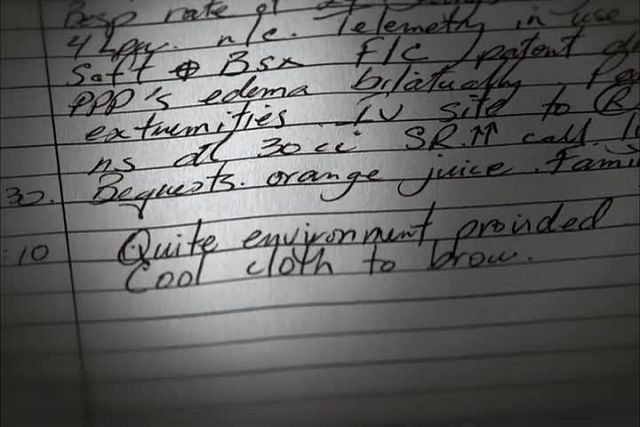 Resp rate of
4 Lpm. n/c. Telemetry in use
Soft ⊕ BSx F/C patent
PPP's edema bilatually.
extremities IV site to Ⓡ
ns at 30cc SR↑↑ call
30. Requests. orange juice. Fami
:10 Quite environment provided
Cool cloth to brow.